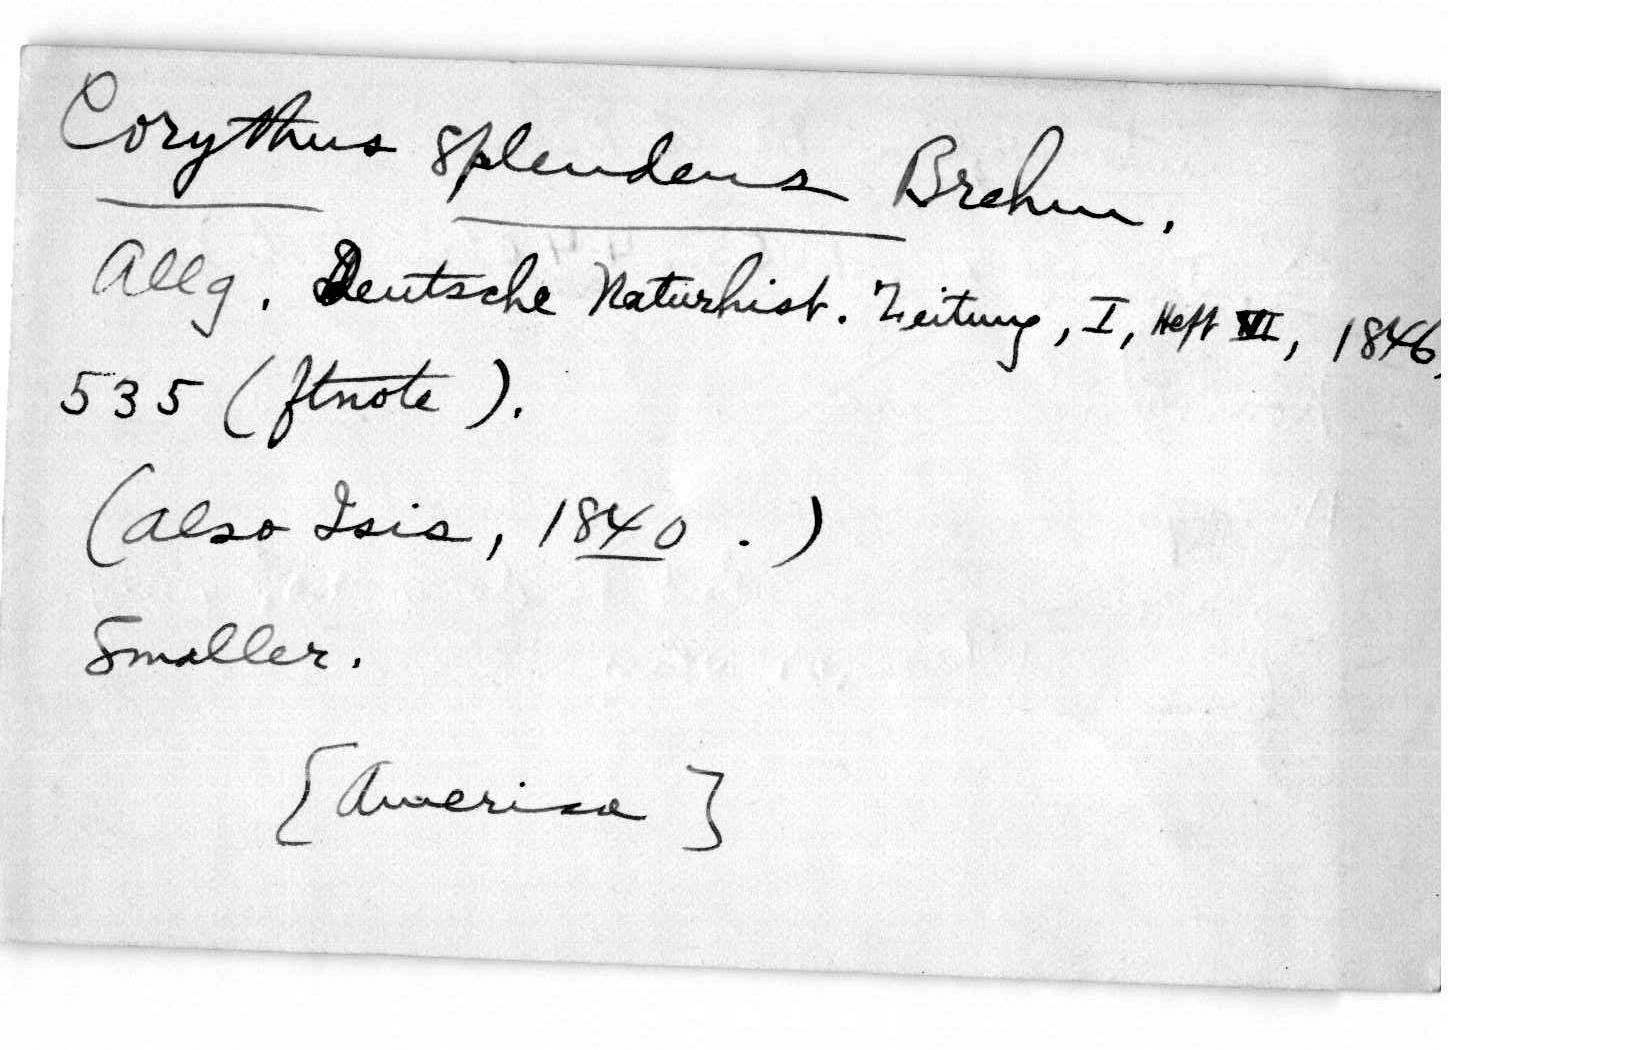 Corythus splendens Brehm.
Allg. Deutsche Naturhist. Zeitung, I, Heft VI, 1846,
535 (ftnote).
(Also Isis, 1840 .)
Smaller.
[America]